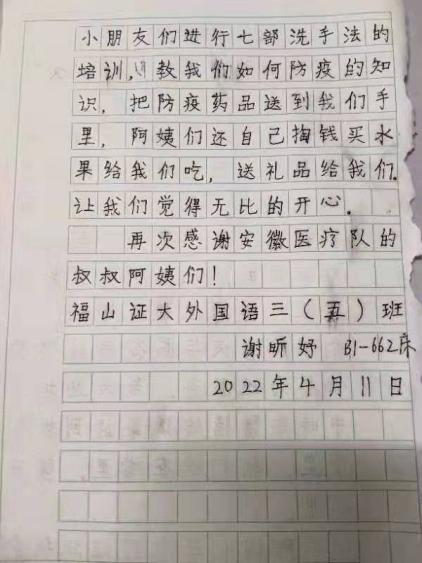 小朋友们进行七部洗手法的
培训,教我们如何防疫的知
识,把防疫药品送到我们手
里,阿姨们还自己掏钱买水
果给我们吃,送礼品给我们.
让我们觉得无比的开心.
再次感谢安徽医疗队的
叔叔阿姨们!
福山证大外国语三(五)班
谢昕妤 B1-662床
2022年4月11日